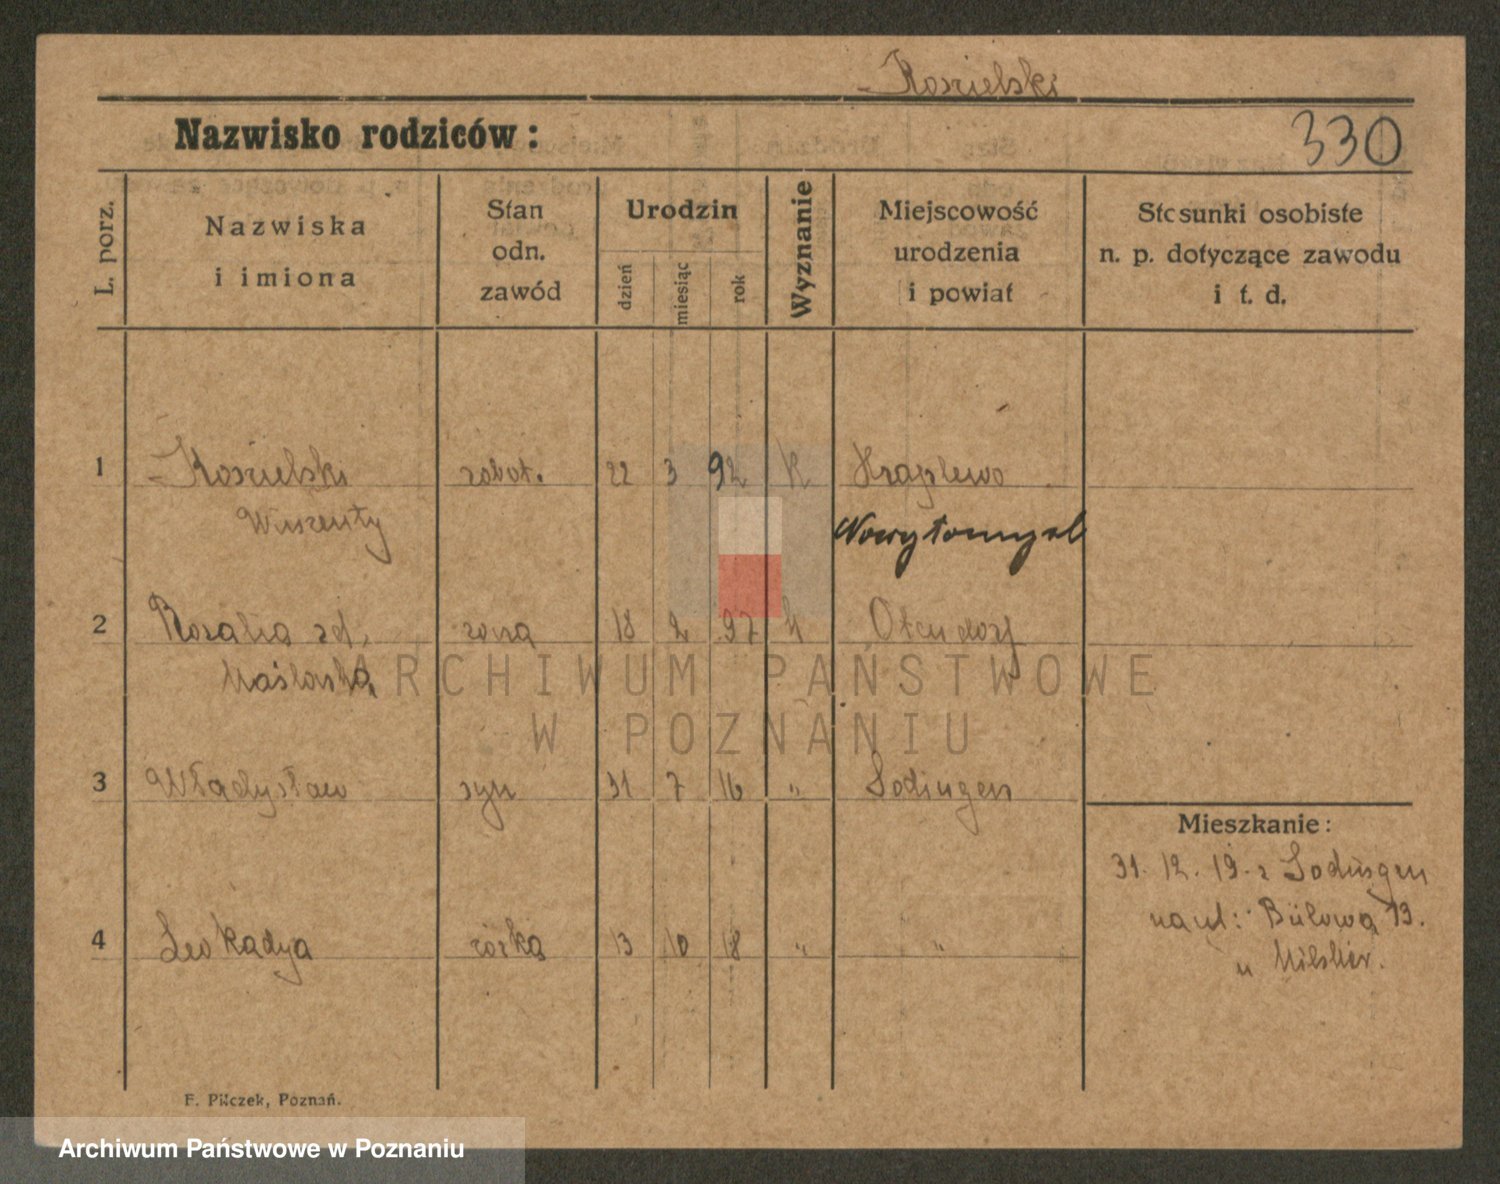 Koszielski
Nazwisko rodziców:
330
L. porz.
Nazwiska
i imiona
Stan
odn.
zawód
Urodzin
dzień
miesiąc
rok
Wyznanie
Miejscowość
urodzenia
i powiat
Stosunki osobiste
n. p. dotyczące zawodu
i t. d.
1 Koszielski robot. 22 3 92 k
Wincenty Nowytomysl
2 Rozalia zd. żona 18 2 97 k Otendorf
3 Władysław syn 31 7 16 " Sodingen
4 Leokadya córka 13 10 18 " "
Mieszkanie:
31. 12. 19. z Sodingen
na ul: Bülowa 13.
u
F. Pilczek, Poznań.
ARCHIWUM PAŃSTWOWE
W POZNANIU
Archiwum Państwowe w Poznaniu